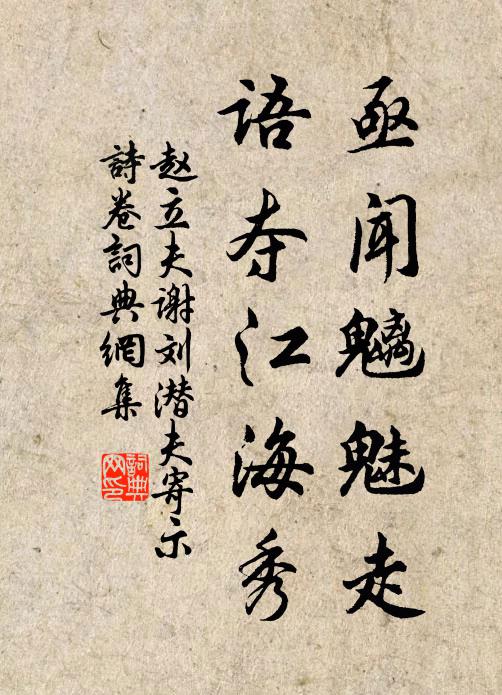 亟闻魑魅走
语夺江海秀
赵立夫谢刘潜夫寄示
詩卷詞典網集
詞典网印